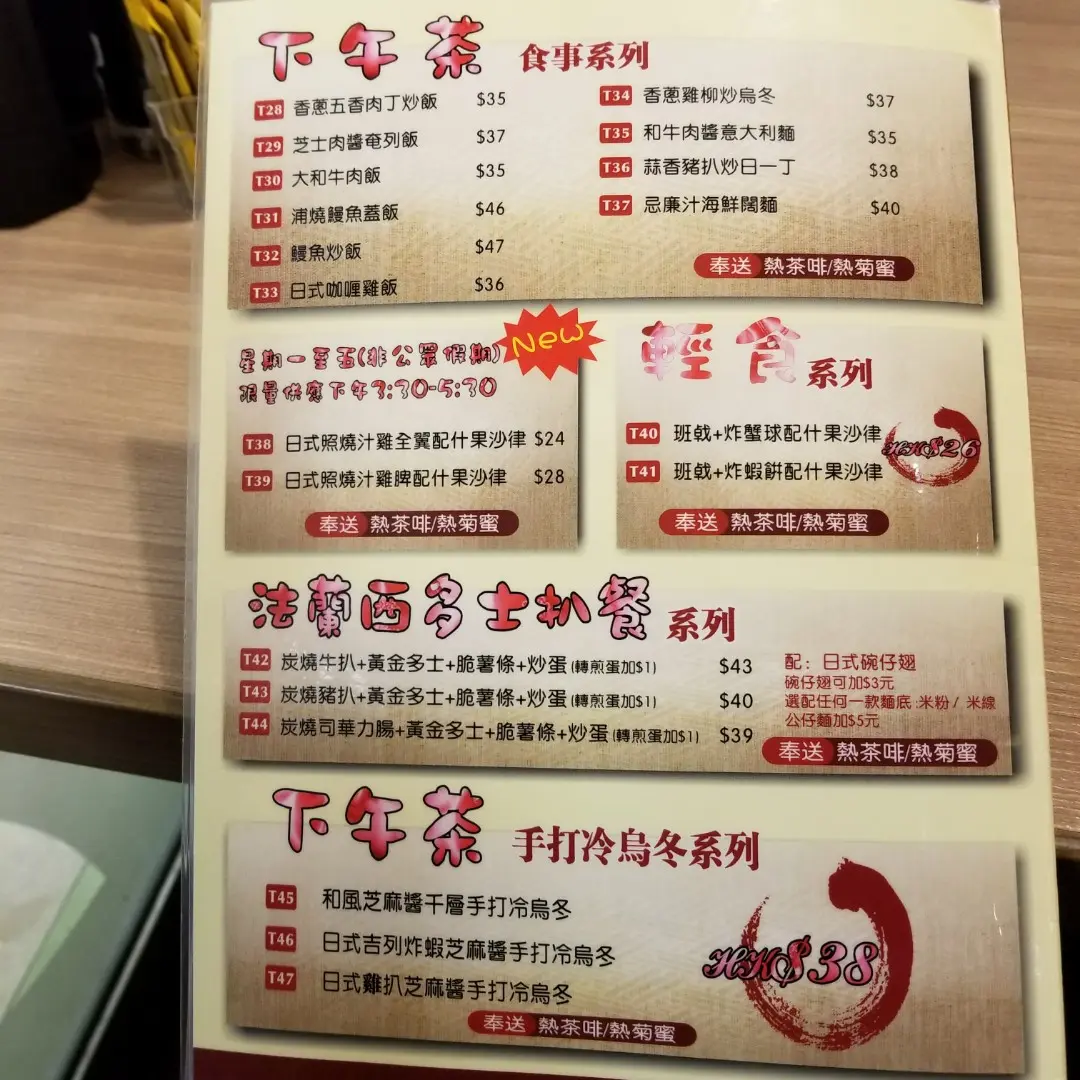 下午茶 食事系列
T28 香蔥五香肉丁炒飯 $35
T29 芝士肉醬奄列飯 $37
T30 大和牛肉飯 $35
T31 浦燒鰻魚蓋飯 $46
T32 鰻魚炒飯 $47
T33 日式咖喱雞飯 $36
T34 香蔥雞柳炒烏冬 $37
T35 和牛肉醬意大利麵 $35
T36 蒜香豬扒炒日一丁 $38
T37 忌廉汁海鮮闊麵 $40
奉送 熱茶啡/熱菊蜜
New
星期一至五(非公眾假期)
限量供應下午3:30-5:30
T38 日式照燒汁雞全翼配什果沙律 $24
T39 日式照燒汁雞脾配什果沙律 $28
奉送 熱茶啡/熱菊蜜
輕食系列
T40 班戟+炸蟹球配什果沙律
T41 班戟+炸蝦餅配什果沙律
HK$26
奉送 熱茶啡/熱菊蜜
法蘭西多士扒餐 系列
T42 炭燒牛扒+黃金多士+脆薯條+炒蛋(轉煎蛋加$1) $43
T43 炭燒豬扒+黃金多士+脆薯條+炒蛋(轉煎蛋加$1) $40
T44 炭燒司華力腸+黃金多士+脆薯條+炒蛋(轉煎蛋加$1) $39
配：日式碗仔翅
碗仔翅可加$3元
選配任何一款麵底:米粉/ 米線
公仔麵加$5元
奉送 熱茶啡/熱菊蜜
下午茶 手打冷烏冬系列
T45 和風芝麻醬千層手打冷烏冬
T46 日式吉列炸蝦芝麻醬手打冷烏冬
T47 日式雞扒芝麻醬手打冷烏冬
HK$38
奉送 熱茶啡/熱菊蜜